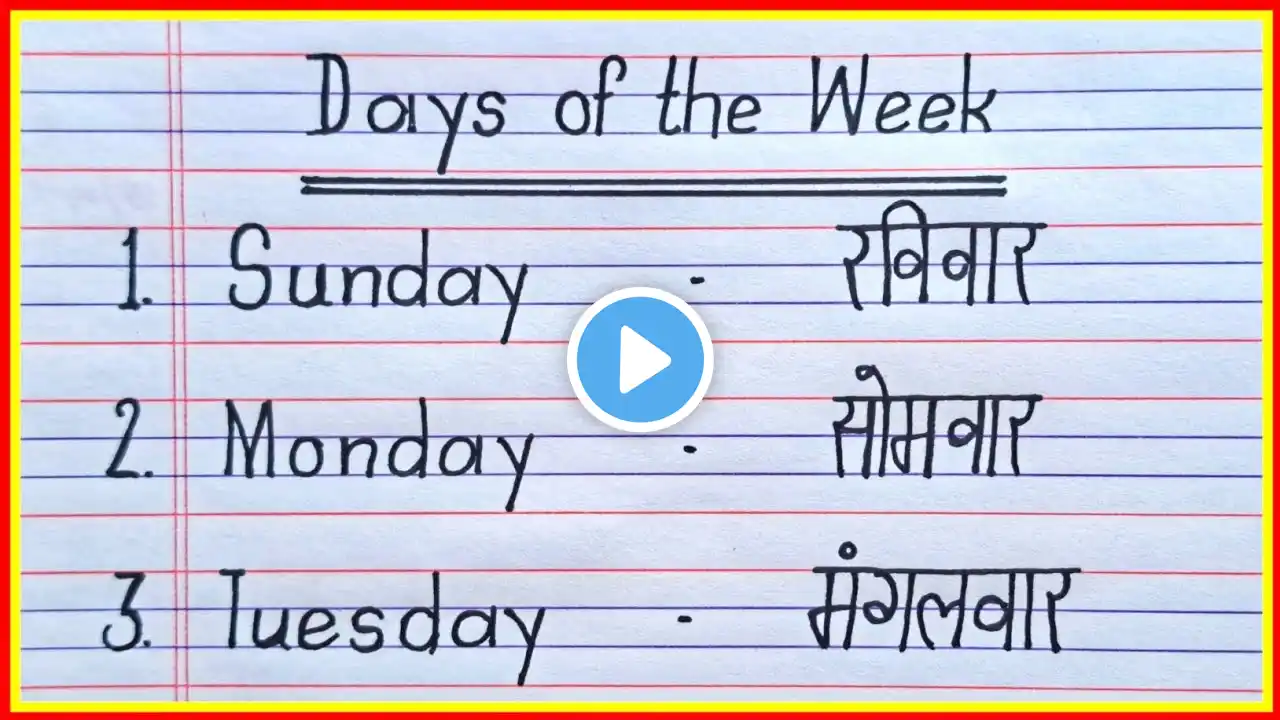 Days of the Week
1. Sunday - रविवार
2. Monday - सोमवार
3. Tuesday - मंगलवार